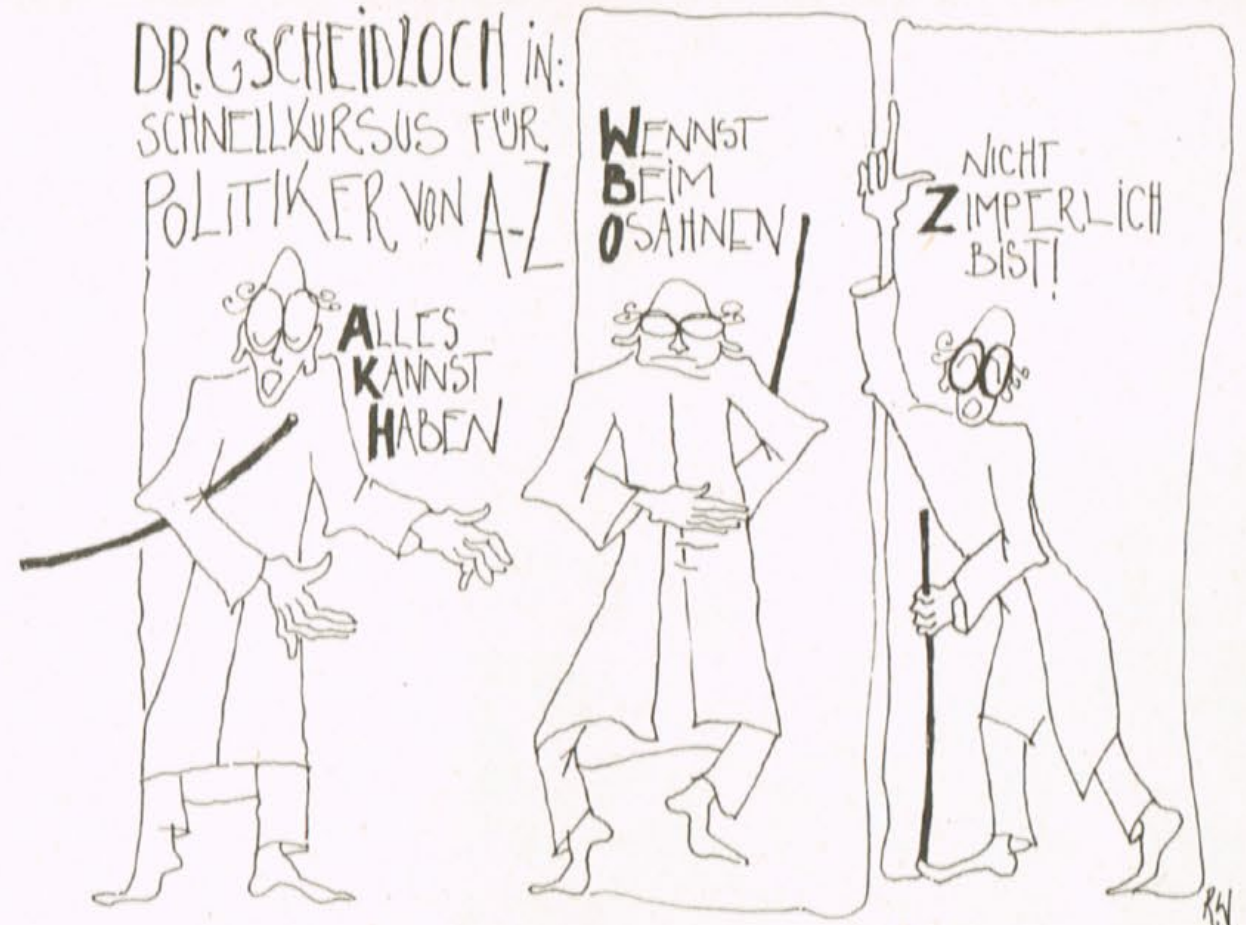 DR. GSCHEIDLOCH IN:
SCHNELLKURSUS FÜR
POLITIKER VON A-Z
ALLES
KANNST
HABEN
WENNST
BEIM
OSAHNEN
NICHT
ZIMPERLICH
BIST!
R.W